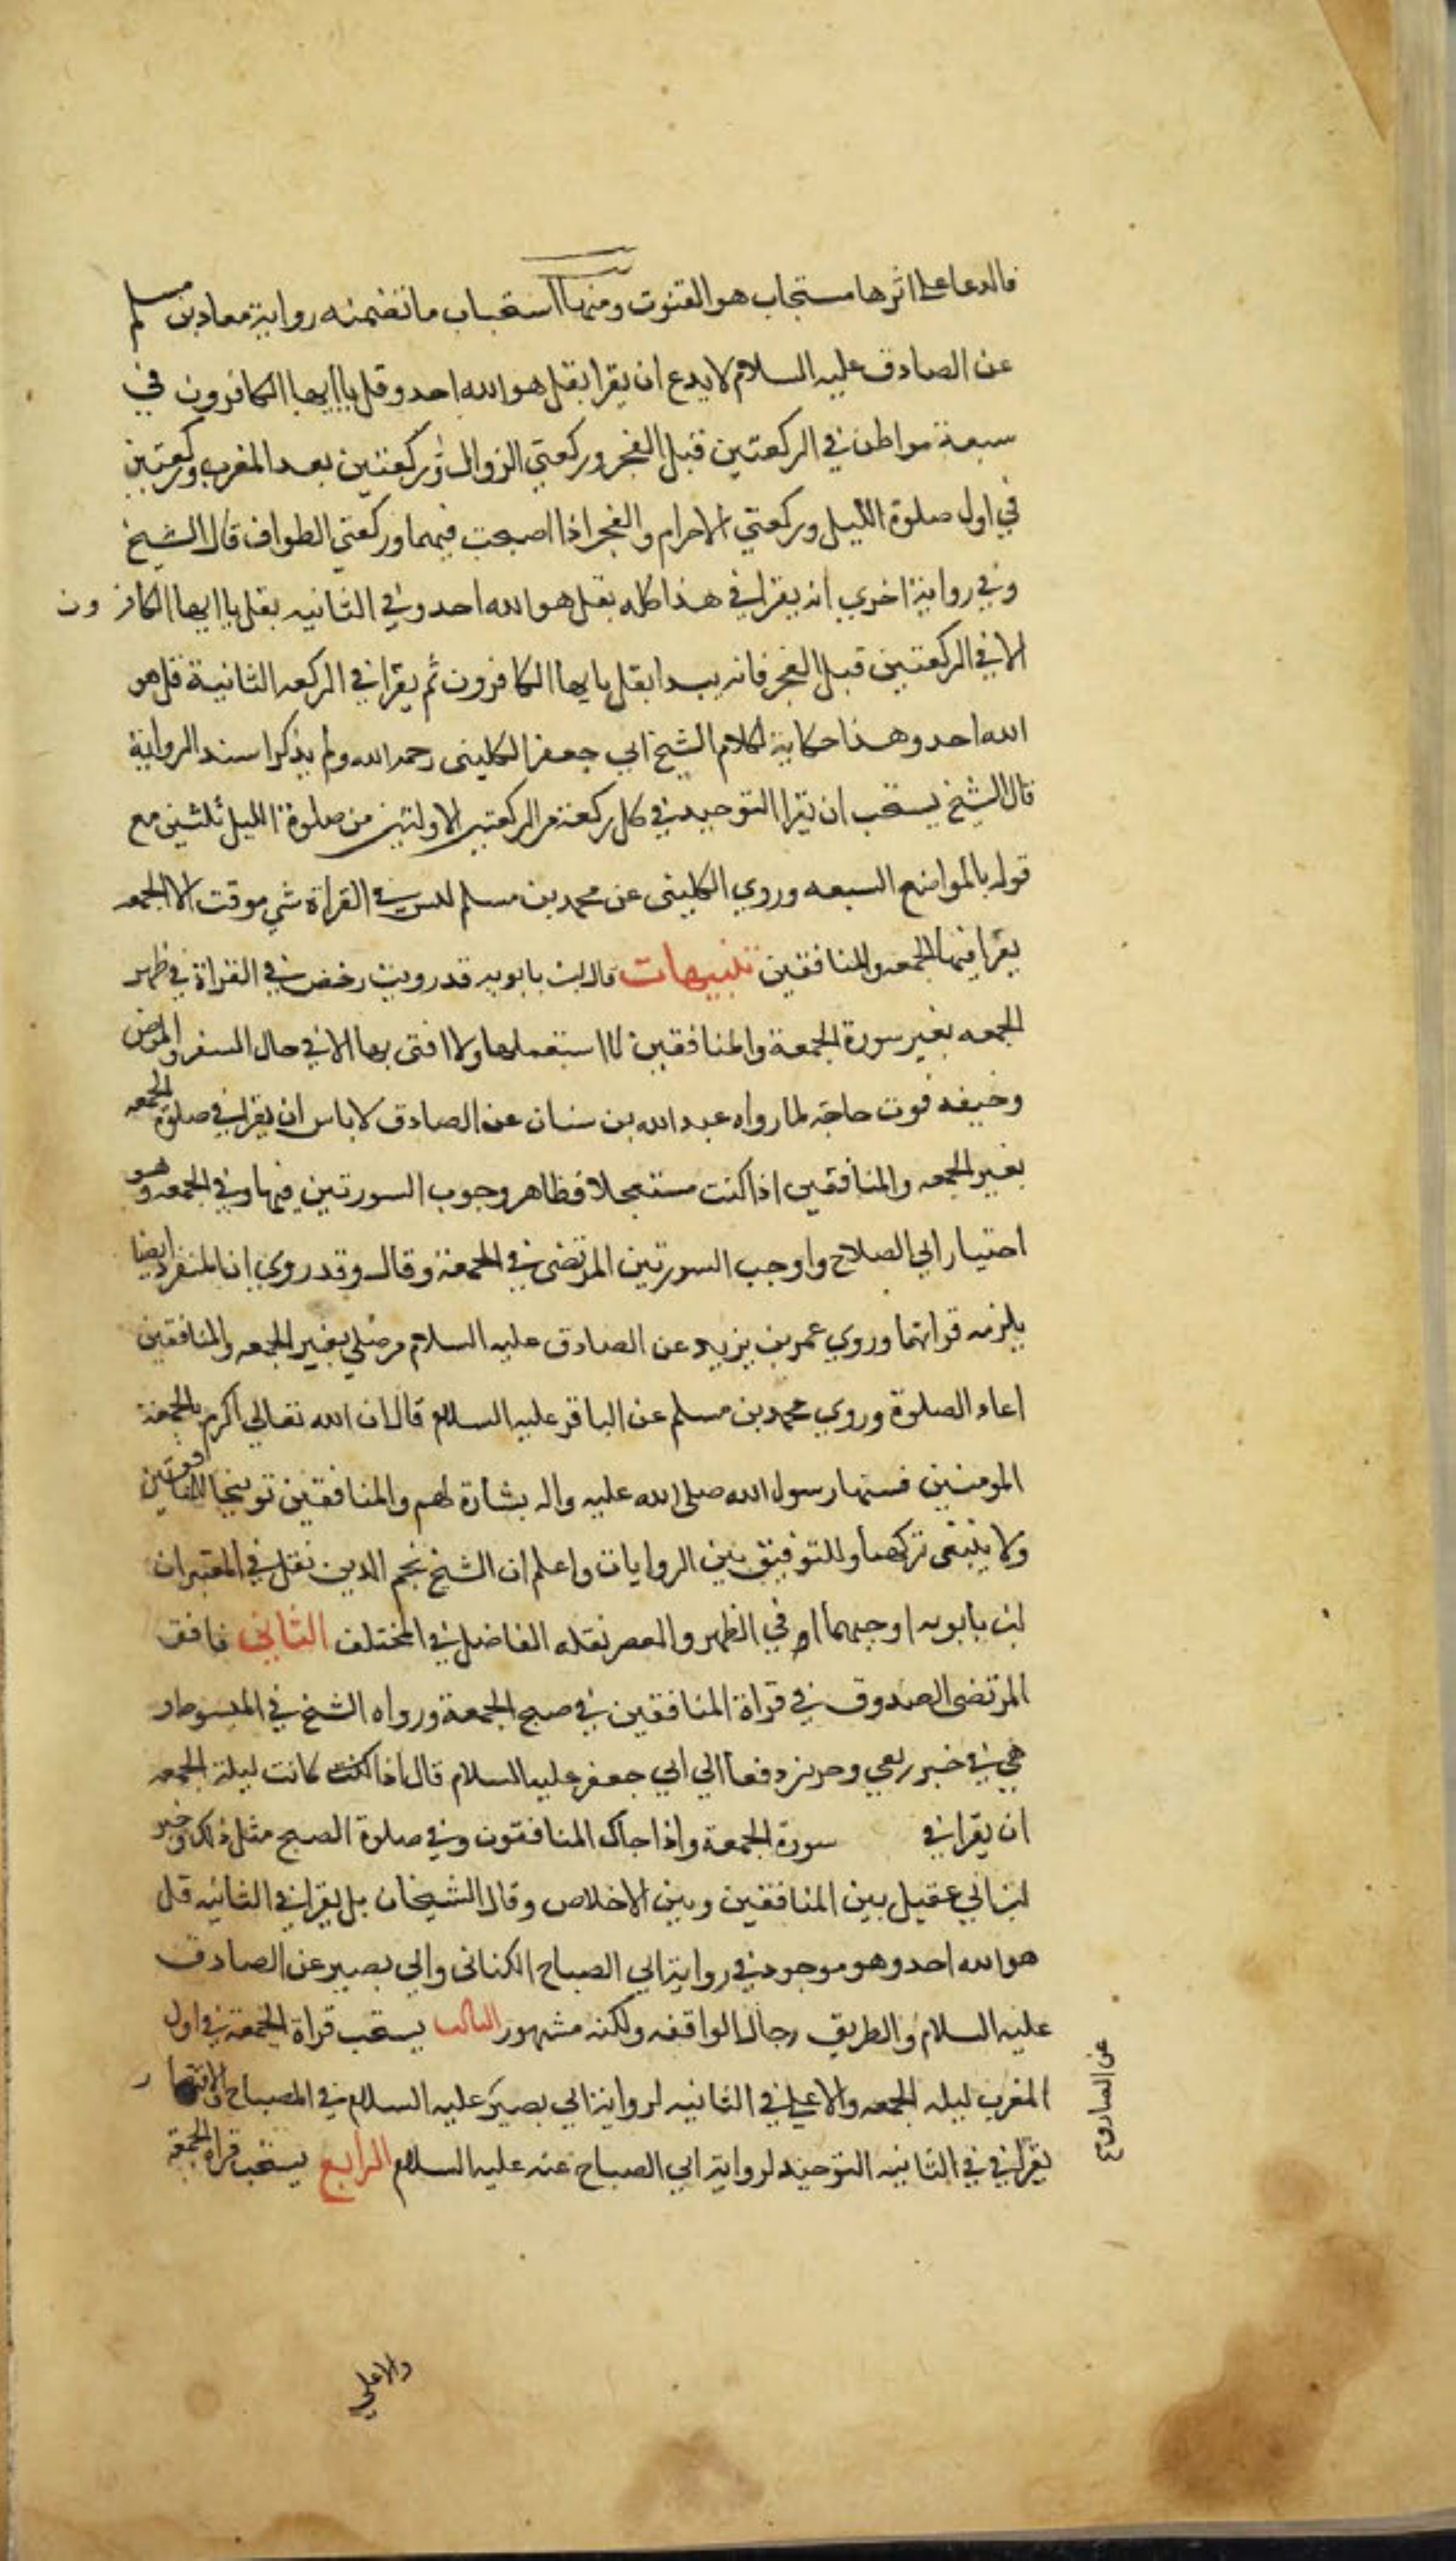 فالدعا على اثرها مستجاب هو القنوت ومنها استحباب ما تضمنه رواية معاد بن مسلم
عن الصادق عليه السلام لا يدع ان يقرا بقل هو الله احد وقل ياايها الكافرون في
سبعة مواطن في الركعتين قبل الفجر وركعتي الزوال وركعتين بعد المغرب وركعتين
في اول صلوة الليل وركعتي الاحرام والفجر اذا اصبحت فيهما وركعتي الطواف قال الشيخ
وفي رواية اخري انه يقرا في هذا كله بقل هو الله احد وفي الثانيه بقل ياايها الكافرون
الا في الركعتين قبل الفجر فانه يبدا بقل يايها الكافرون ثم يقرا في الركعه الثانية قل هو
الله احد وهذا حكاية لكلام الشيخ ابي جعفر الكليني رحمه الله ولم يذكرا سند الرواية
قال الشيخ يستحب ان يقرا التوحيد في كل ركعة من الركعتين الاولتين من صلوة الليل ثلثين مع
قوله بالمواضع السبعه وروي الكليني عن محمد بن مسلم ليس في القراة شي موقت الا الجمعه
يقرا فيها الجمعه والمنافقين تنبيهات قال ابن بابويه قد رويت رخص في القراة في ظهر
الجمعه بغير سورة الجمعة والمنافقين لا استعملها ولا افتى بها الا في حال السفر والمرض
وخيفه فوت حاجة لما رواه عبد الله بن سنان عن الصادق لا باس ان يقرا في صلوة الجمعه
بغير الجمعه والمنافقين اذا كنت مستعجلا فظاهر وجوب السورتين فيها وفي الجمعه وهو
اختيار ابي الصلاح واوجب السورتين المرتضى في الجمعة وقال وقد روي ان المنفرد ايضا
يلزمه قراتهما وروي عمر بن يزيد عن الصادق عليه السلام من صلي بغير الجمعه والمنافقين
اعاد الصلوة وروي محمد بن مسلم عن الباقر عليه السلام قال ان الله تعالي اكرم بالجمعة
المومنين فسنها رسول الله صلى الله عليه واله بشارة لهم والمنافقين توبيخا للمنافقين
ولا ينبغي تركهما وللتوفيق بين الروايات واعلم ان الشيخ نجم الدين نقل في المعتبر ان
ابن بابويه اوجبهما في الظهر والعصر نقله الفاضل في المختلف الثاني فافق
المرتضى الصدوق في قراة المنافقين في صبح الجمعة ورواه الشيخ في المبسوط و
هي في خبر ربعي وحريز رفعا الي ابي جعفر عليه السلام قال اذا كنت كانت ليلة الجمعه
ان يقرا في سورة الجمعة واذا جاك المنافقون وفي صلوة الصبح مثل ذلك وخير
ابن ابي عقيل بين المنافقين وبين الاخلاص وقال الشيخان بل يقرا في الثانيه قل
هو الله احد وهو موجود في رواية ابي الصباح الكناني وابي بصير عن الصادق
عليه السلام والطريق رجال الواقفه ولكنه مشهور الثالث يستحب قراة الجمعة في اول
المغرب ليله الجمعه والاعلي في الثانيه لرواية ابي بصير عليه السلام في المصباح والاقتصار
يقرا في في الثانيه التوحيد لرواية ابي الصباح عنه عليه السلام الرابع يستحب قراة الجمعة
عن الصادق ع
والاعلي